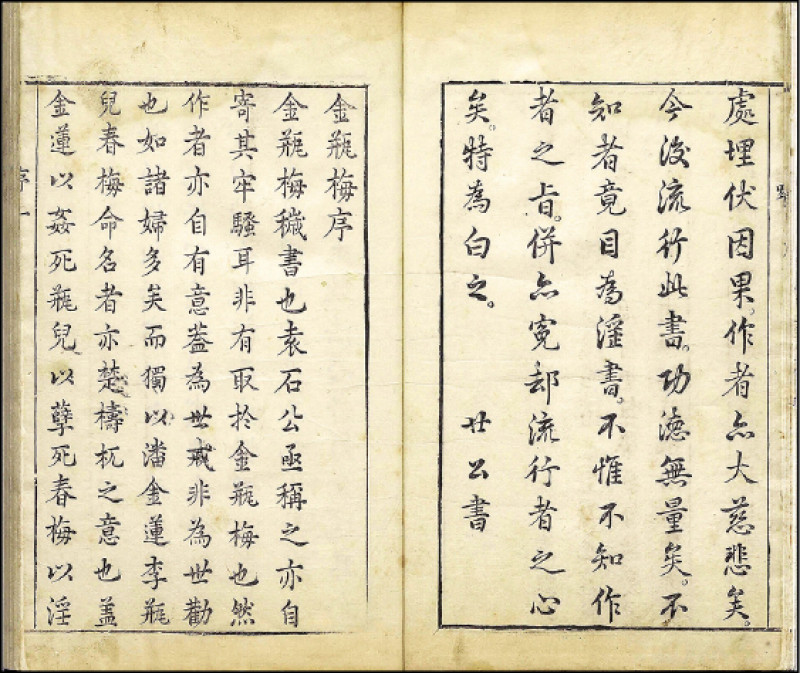 處埋伏因果。作者亦大慈悲矣。
今後流行此書。功德無量矣。不
知者竟目為淫書。不惟不知作
者之旨。併亦冤却流行者之心
矣。特為白之。
廿公書
金瓶梅序
金瓶梅穢書也袁石公亟稱之亦自
寄其牢騷耳非有取於金瓶梅也然
作者亦自有意葢為世戒非為世勸
也如諸婦多矣而獨以潘金蓮李瓶
兒春梅命名者亦楚檮杌之意也葢
金蓮以姦死瓶兒以孽死春梅以淫
序
一